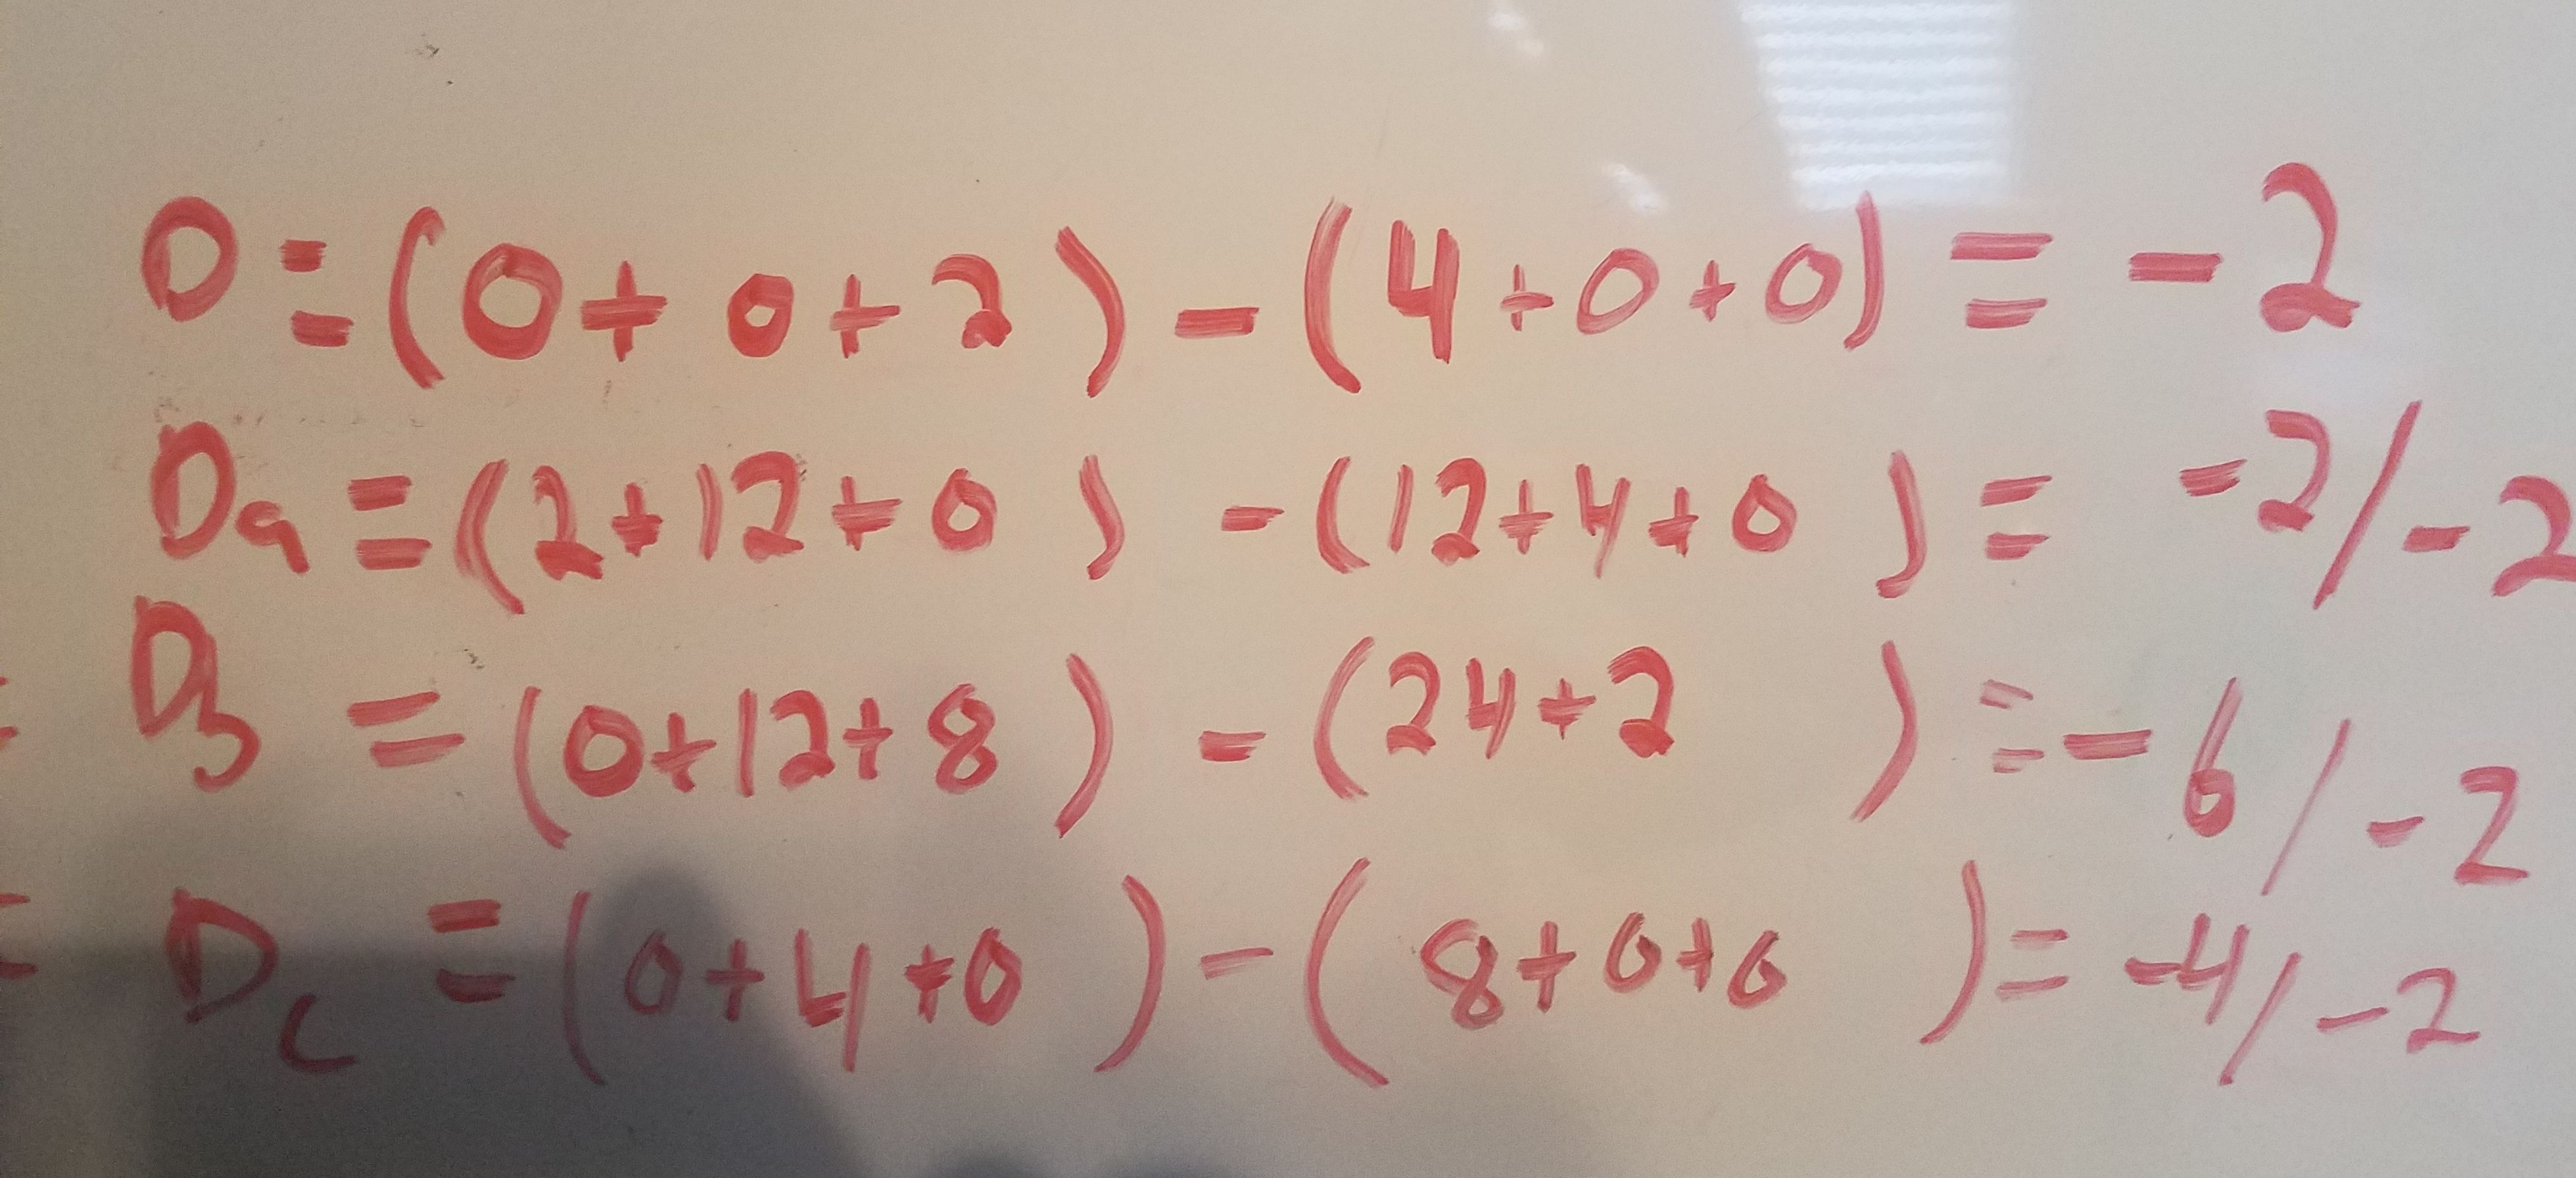 D = (0 + 0 + 2) - (4 + 0 + 0) = -2
Da = (2 + 12 + 0) - (12 + 4 + 0) = -2/-2
Db = (0 + 12 + 8) - (24 + 2) = -6/-2
Dc = (0 + 4 + 0) - (8 + 0 + 0) = -4/-2